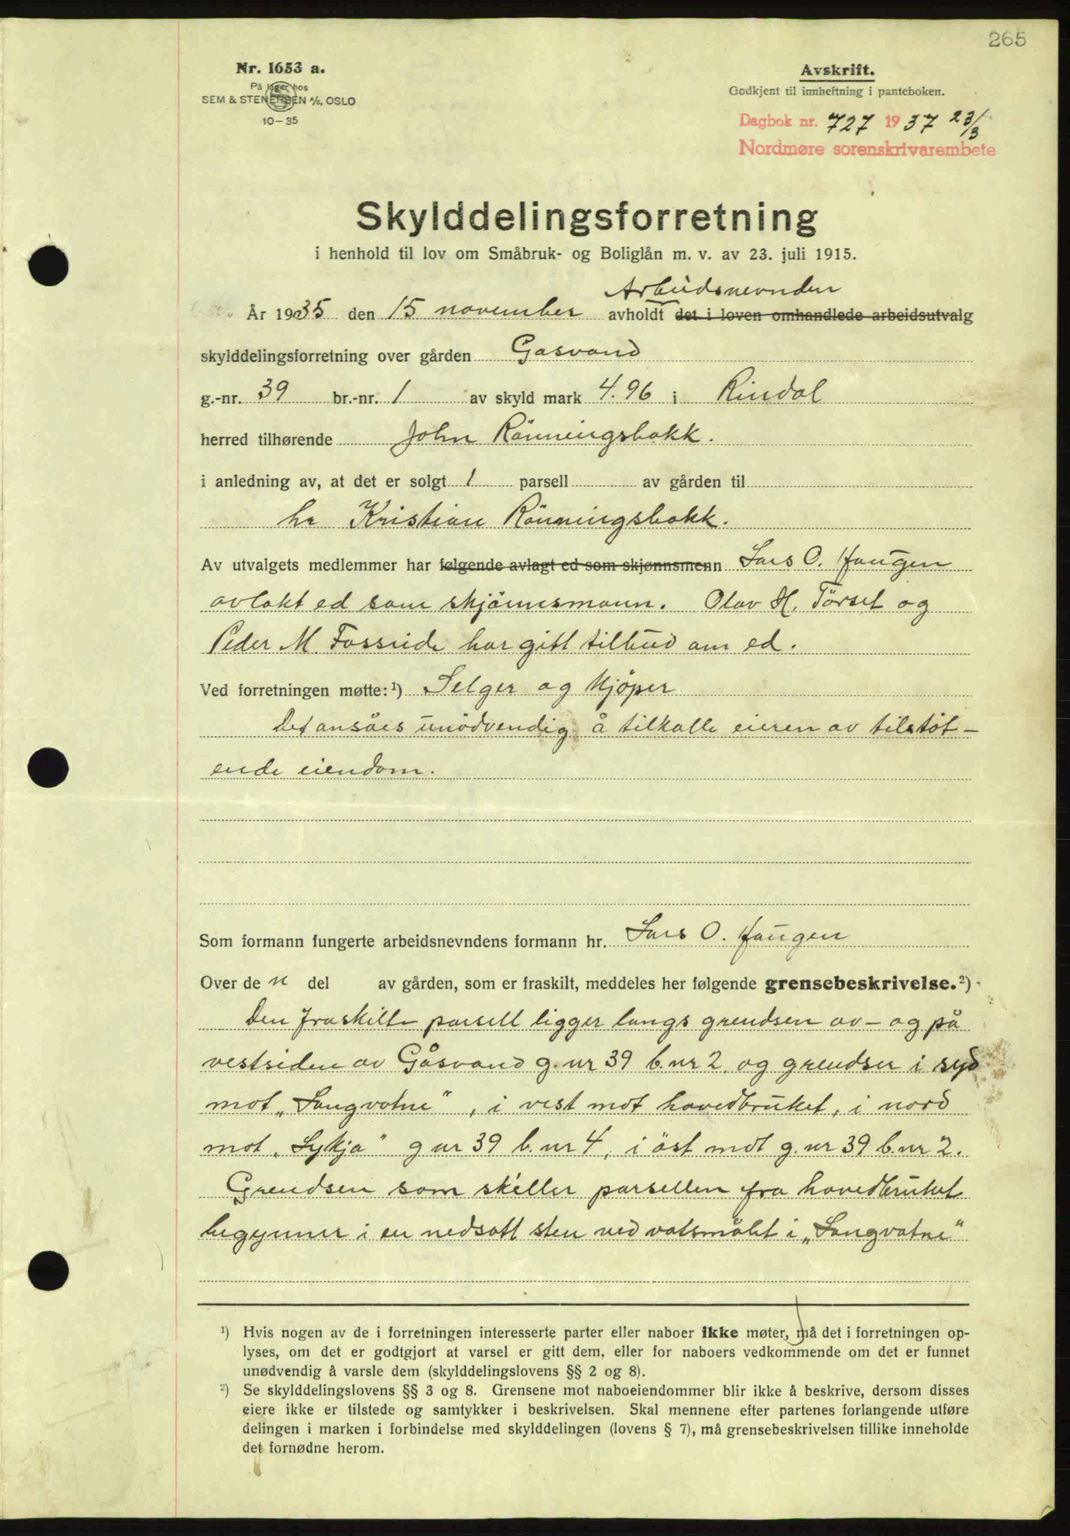 265
Nr. 1653 a.
På lager hos
SEM & STENERSEN A/S, OSLO
10-35
Avskrift.
Godkjent til innheftning i panteboken.
Dagbok nr. 727 1937 23/3
Nordmøre sorenskrivarembete
Skylddelingsforretning
i henhold til lov om Småbruk- og Boliglån m. v. av 23. juli 1915.
Arbeidsnevnden
År 1935 den 15 november avholdt det i loven omhandlede arbeidsutvalg
skylddelingsforretning over gården Gasvand
g.-nr. 39 br.-nr. 1 av skyld mark 4.96 i Rindal
herred tilhørende John Rönningsbakk.
i anledning av, at det er solgt 1 parsell av gården til
hr Kristian Rönningsbakk.
Av utvalgets medlemmer har følgende avlagt ed som skjønnsmenn Lars O. Haugen
avlakt ed som skjönnsmann. Olav H. Törset og
Peder M Fosseide har gitt tilbud om ed.
Ved forretningen møtte:¹) Selger og kjöper
Det ansåes unödvendig å tilkalle eieren av tilstöt-
ende eiendom.
Som formann fungerte arbeidsnevndens formann hr. Lars O. Haugen
Over de n del av gården, som er fraskilt, meddeles her følgende grensebeskrivelse.²)
Den fraskilte parsell ligger langs grendsen av - og på
vestsiden av Gåsvand g. nr 39 b. nr 2. og grendser i syd
mot „Langvatne", i vest mot hovedbruket, i nord
mot „Lykja" g nr 39 b. nr 4, i öst mot g. nr 39 b. nr 2.
Grendsen som skiller parsellen fra hovedbruket
begynner i en nedsatt sten ved vatsmålet i „Langvatne"
¹) Hvis nogen av de i forretningen interesserte parter eller naboer ikke møter, må det i forretningen op-
lyses, om det er godtgjort at varsel er gitt dem, eller for naboers vedkommende om det er funnet
unødvendig å varsle dem (skylddelingslovens §§ 2 og 8).
²) Se skylddelingslovens §§ 3 og 8. Grensene mot naboeiendommer blir ikke å beskrive, dersom disses
eiere ikke er tilstede og samtykker i beskrivelsen. Skal mennene efter partenes forlangende utføre
delingen i marken i forbindelse med skylddelingen (lovens § 7), må grensebeskrivelsen tillike inneholde
det fornødne herom.